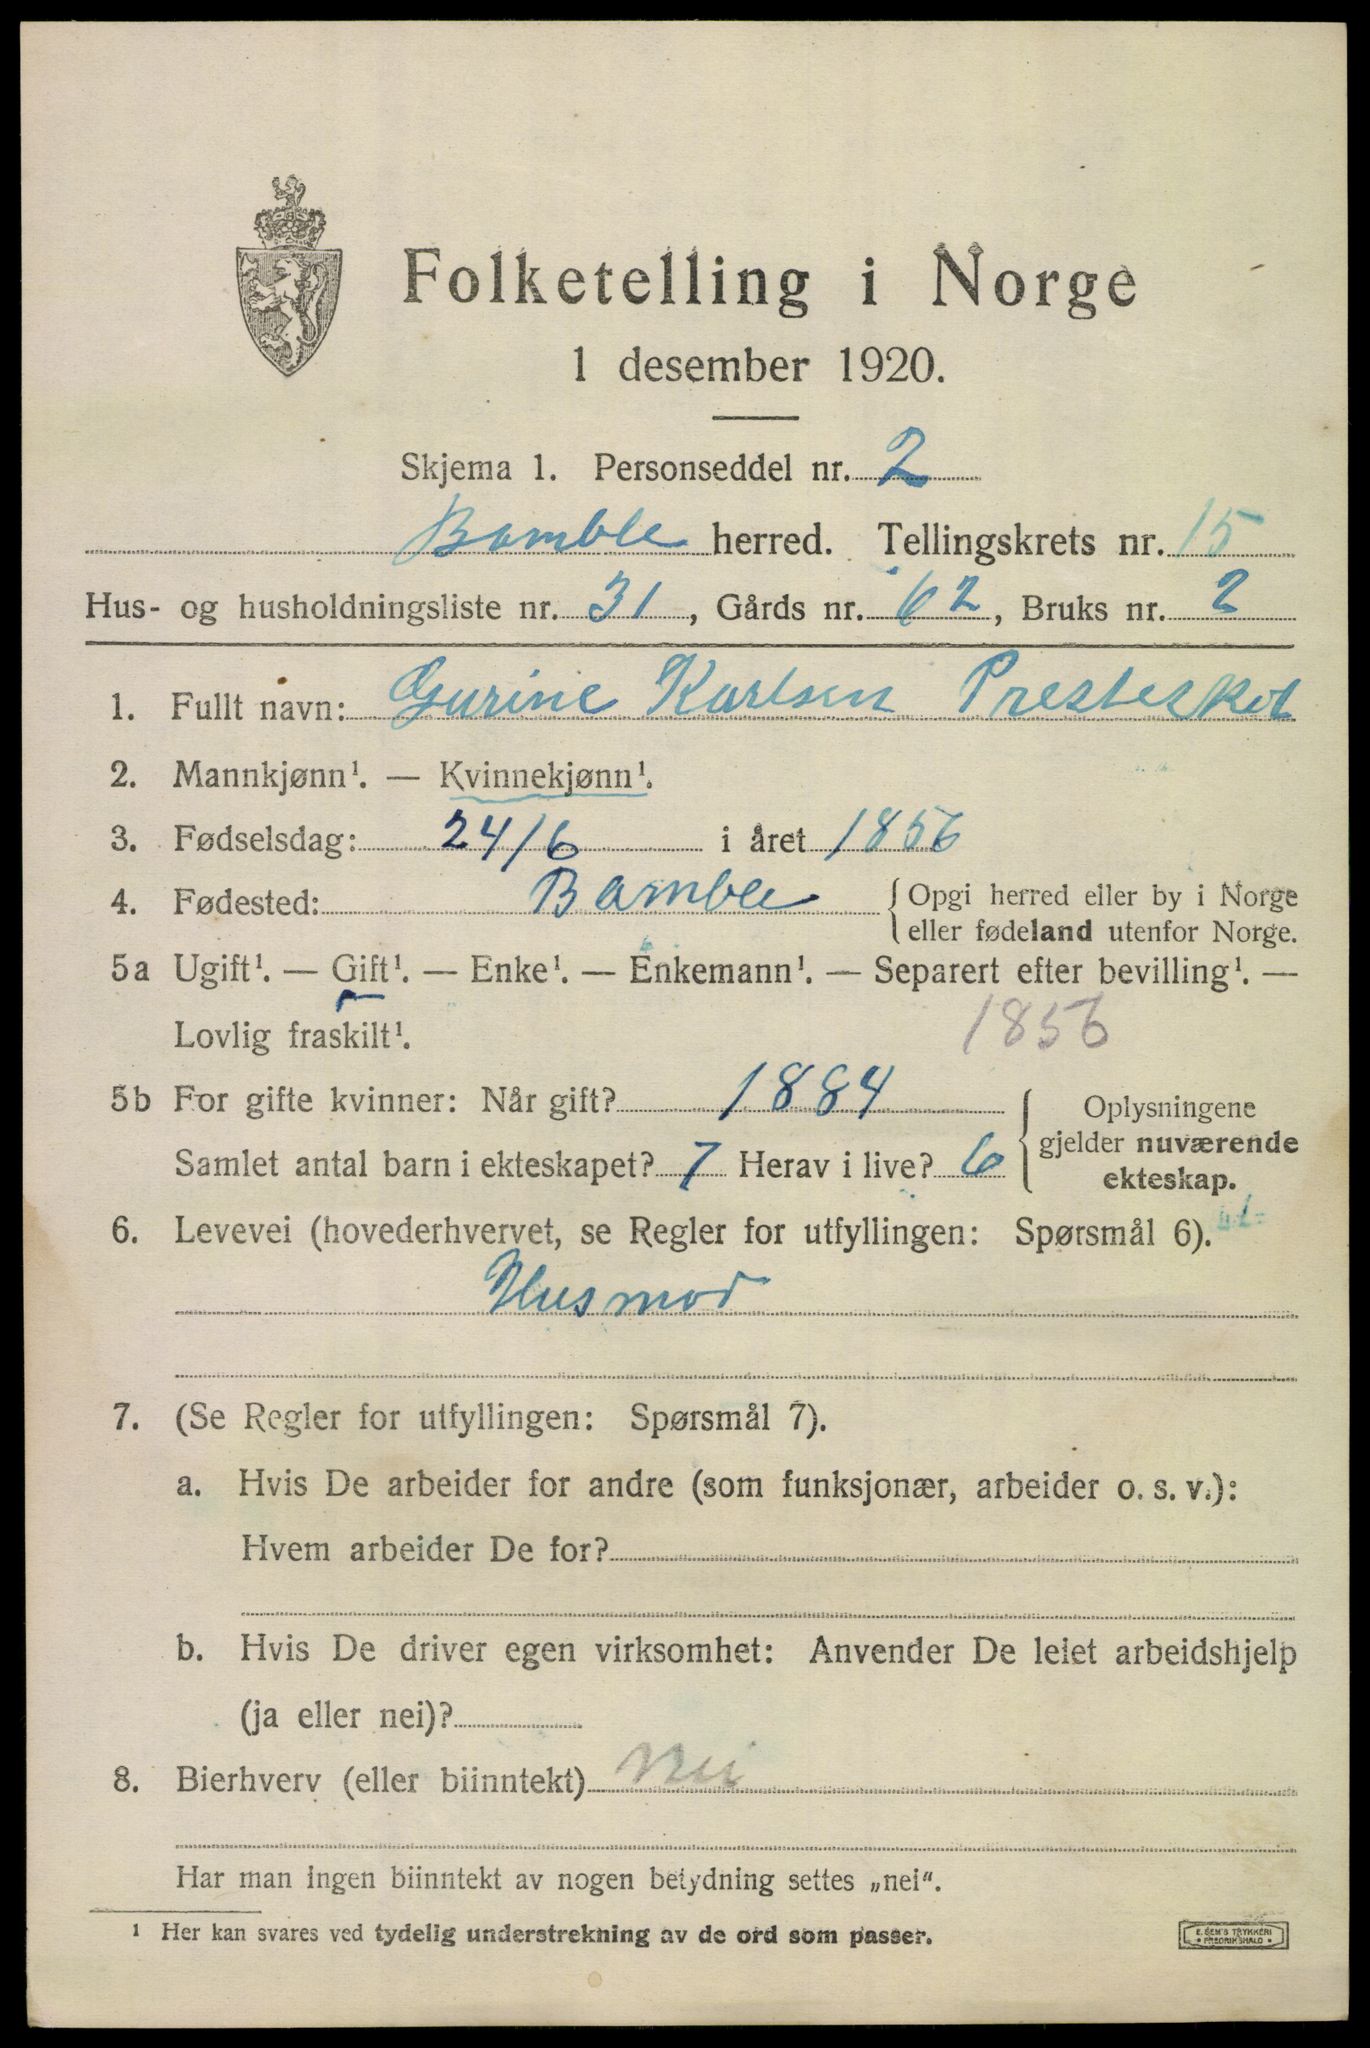 Folketelling i Norge
1 desember 1920.
Skjema 1. Personseddel nr. 2
Bamble herred. Tellingskrets nr. 15
Hus- og husholdningsliste nr. 31, Gårds nr. 62, Bruks nr. 2
1. Fullt navn: Gurine Karlsen
2. Mannkjønn¹. — Kvinnekjønn¹.
3. Fødselsdag: 24/6 i året 1856
4. Fødested: Bamble { Opgi herred eller by i Norge
eller fødeland utenfor Norge.
5a Ugift¹. — Gift¹. — Enke¹. — Enkemann¹. — Separert efter bevilling¹. —
Lovlig fraskilt¹. 1856
5b For gifte kvinner: Når gift? 1884
Samlet antal barn i ekteskapet? 7 Herav i live? 6
{ Oplysningene
gjelder nuværende
ekteskap.
6. Levevei (hovederhvervet, se Regler for utfyllingen: Spørsmål 6).
Husmor
7. (Se Regler for utfyllingen: Spørsmål 7).
a. Hvis De arbeider for andre (som funksjonær, arbeider o. s. v.):
Hvem arbeider De for?
b. Hvis De driver egen virksomhet: Anvender De leiet arbeidshjelp
(ja eller nei)?
8. Bierhverv (eller biinntekt) Nei
Har man ingen biinntekt av nogen betydning settes „nei“.
¹ Her kan svares ved tydelig understrekning av de ord som passer.
E. SEM'S TRYKKERI
• FREDRIKSHALD •